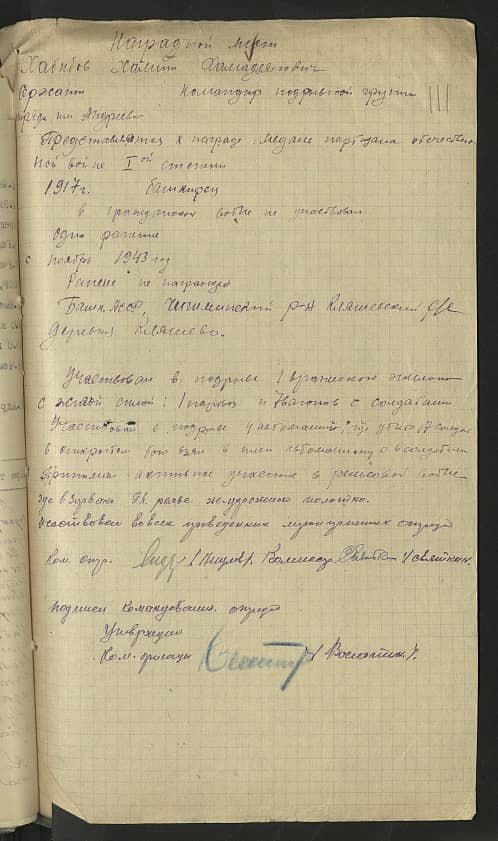 Наградной лист
Хабибов Хамит Хамадьянович
Сержант Командир подрывной группы
отряда им Андреева
Представляется к награде медаль партизана отечествен
ной войне I ой степени
1917 г. башкирец
в гражданской войне не участвовал
одно ранение
с ноябрь 1943 год
Ранее не награждён
Башк. АССР, Чишминский р-н Кляшевский с/с
Деревня Кляшево.
Участвовал в подрыве 1 вражеского эшелона
с живой силой: 1 паровоз и 7 вагонов с солдатами
Участвовал в подрыве автомашины, где убито 17 солдат
в открытом бою взял в плен автомашину с солдатами
Принимал активные участие в рельсовой войне
где взорвано рельс железнодорожного полотна.
Участвовал во всех проведенных мероприятиях отряда
Ком. отр. Комиссар / Святкин.
подписи командования отряда
Утверждаю
Ком. бригады